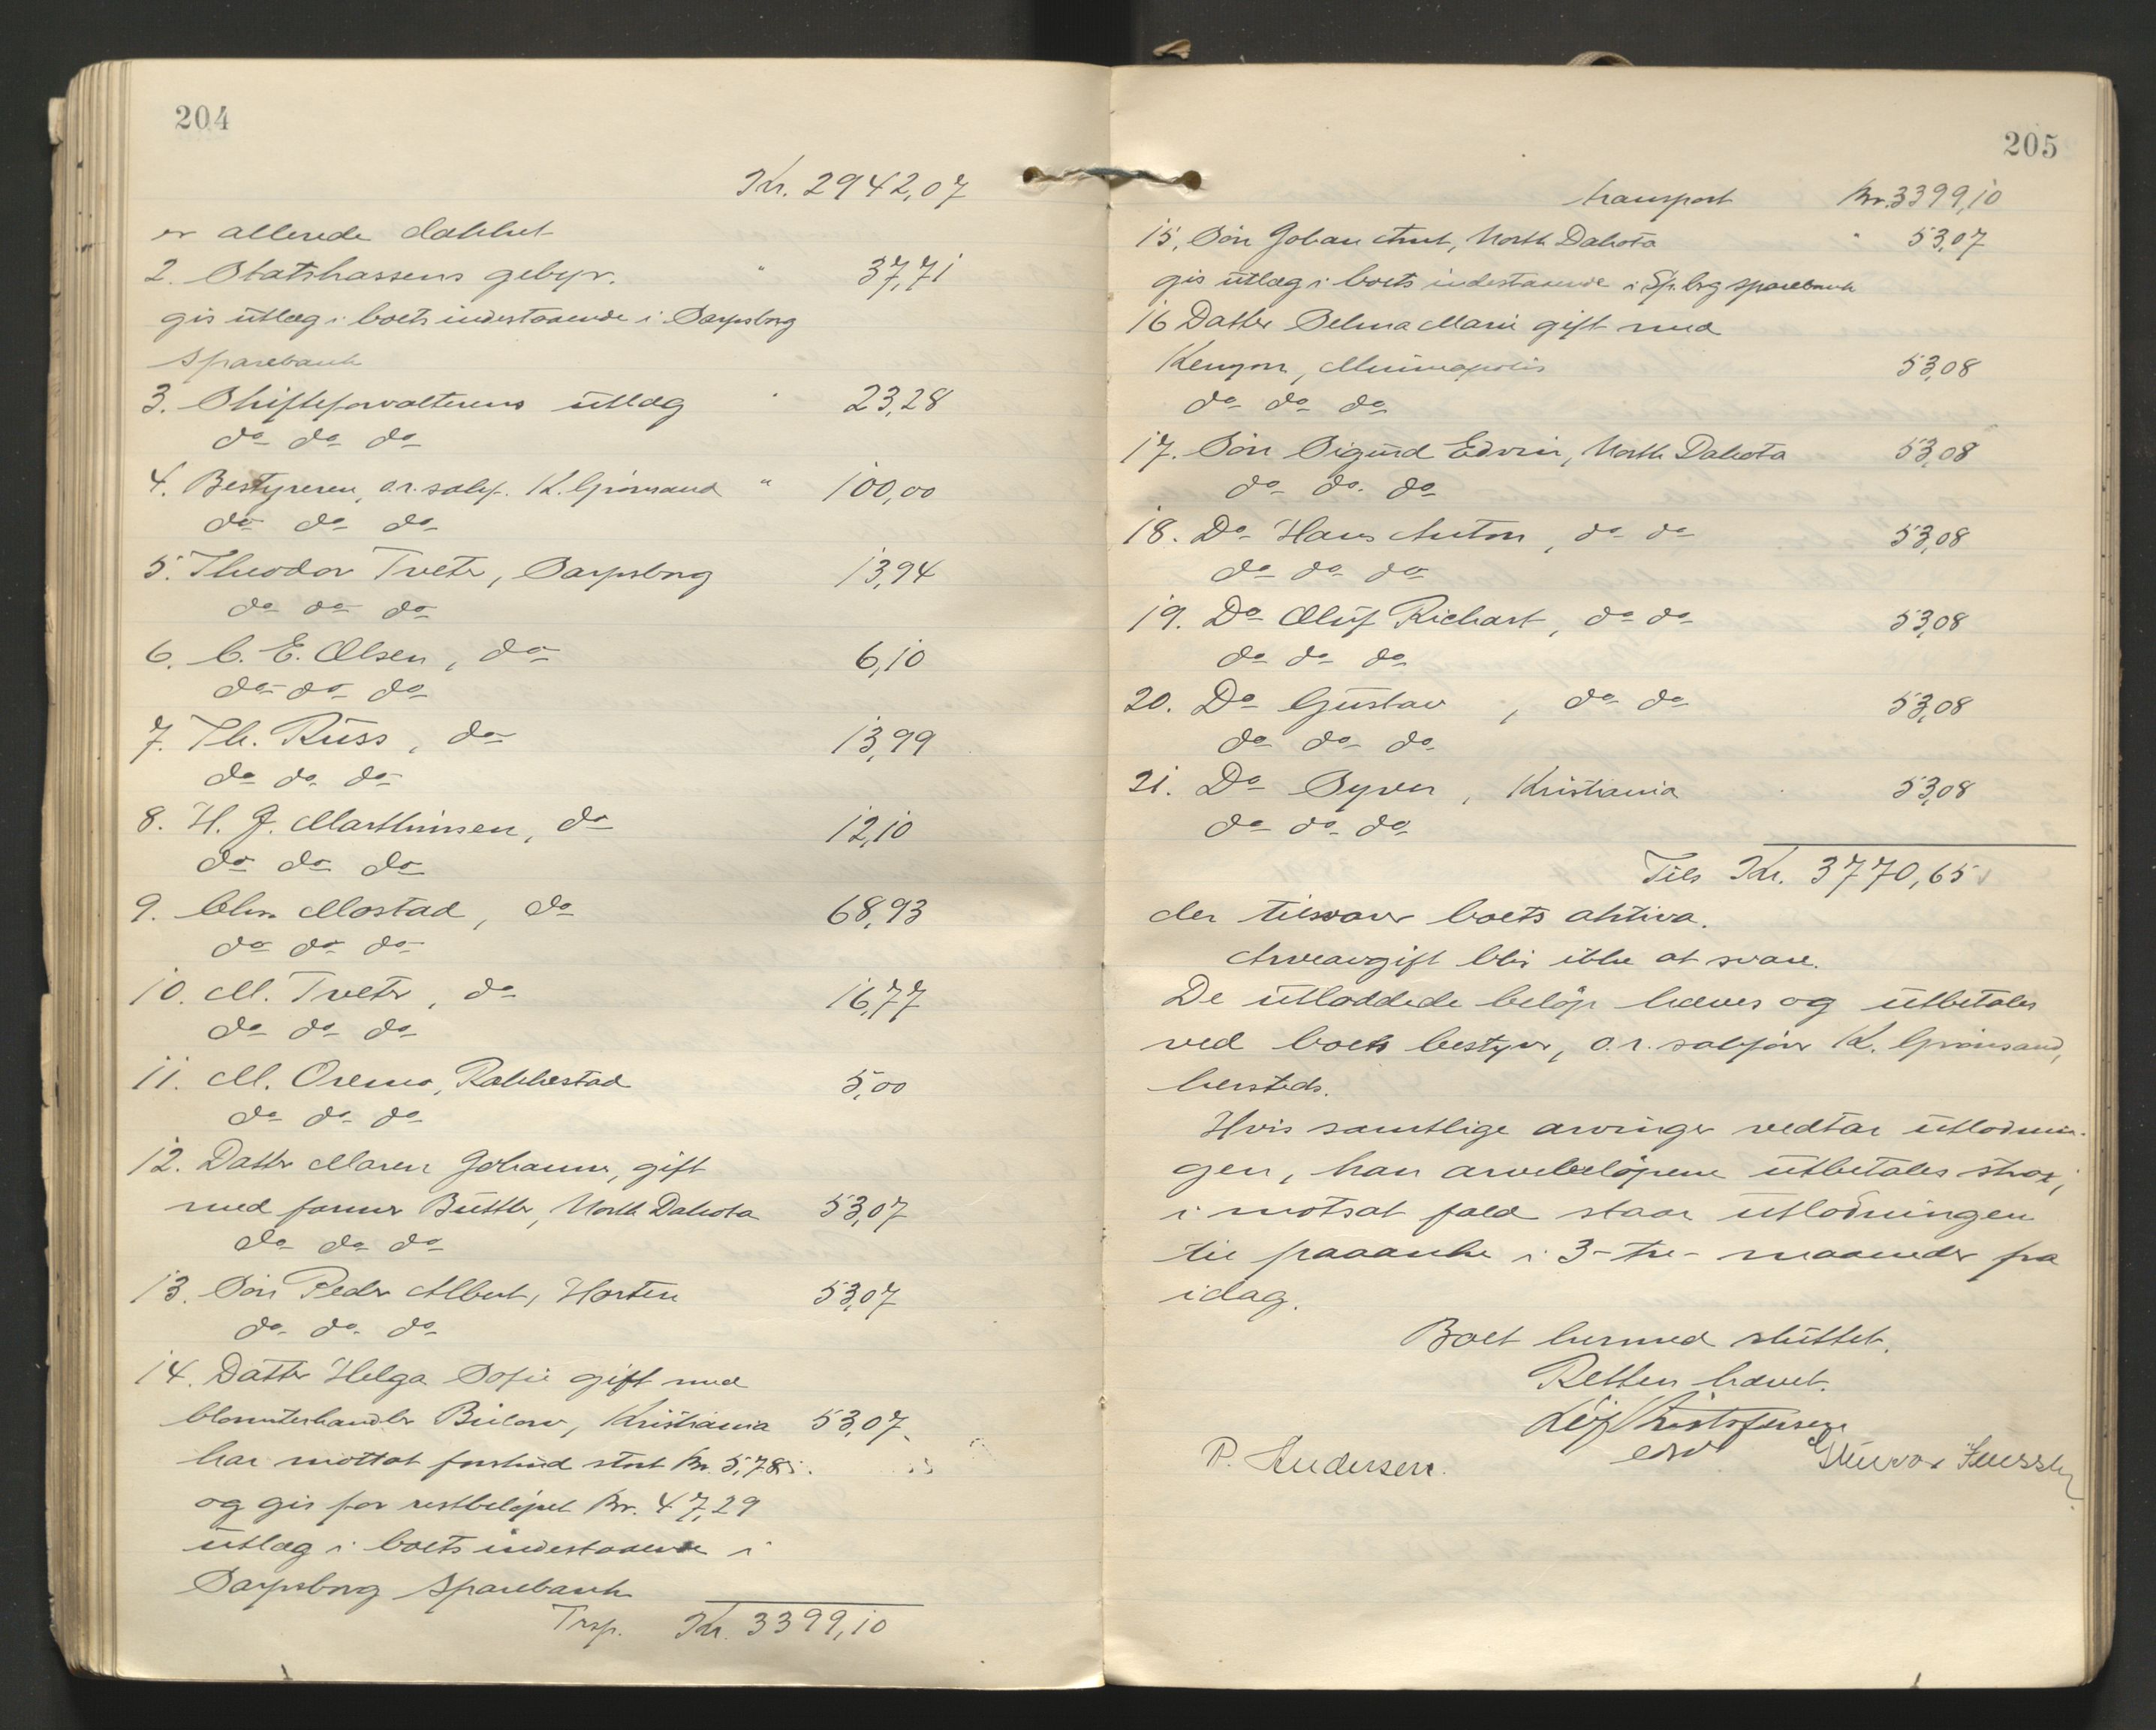 204
Kr. 2942,07
er allerede dækket
2. Statskassens gebyr. " 37,71
gis utlæg i boets indestaaende i Sarpsborg
Sparebank
3. Skifteforvalterens utlæg " 23,28
do do do
4. Bestyreren, o.r.sakf. K. Grimsand " 100,00
do do do
5. Theodor Tveter, Sarpsborg 13,94
do do do
6. C. E. Olsen, do 6,10
do do do
7. Th. Russ, do 13,99
do do do
8. H. J. Marthinsen, do 12,10
do do do
9. Chr. Mostad, do 68,93
do do do
10. M. Tveter, do 16,77
do do do
11. M. Oremo, Rakkestad 5,00
do do do
12. Datter Maren Johanne, gift
med farmer Buttler, North Dakota 53,07
do do do
13. Søn Peder Albert, Horten 53,07
do do do
14. Datter Helga Sofie gift med
blomsterhandler Bülow, Kristiania 53,07
har mottat forskud stort kr. 5,78
og gis for restbeløpet kr. 47,29
utlæg i boets indestaaende i
Sarpsborg Sparebank
Trsp. Kr. 3399,10
205
transport kr. 3399,10
15. Søn Johan Arnt, North Dakota " 53,07
gis utlæg i boets indestaaende i Sp.brg sparebank
16 Datter Selma Marie gift med
Kenyon, Minneapolis 53,08
do do do
17. Søn Sigurd Edvin, North Dakota 53,08
do do. do
18. Do Hans Anton, do do 53,08
do do do
19. Do Oluf Richart, do do 53,08
do do do
20. Do Gustav , do do 53,08
do do do
21. Do Syver , Kristiania 53,08
do do do
Tils Kr. 3770,65
der tilsvarer boets aktiva.
Arveavgift blir ikke at svare.
De utloddede beløp hæves og utbetales
ved boets bestyrer, o.r.sakfører K. Grimsand,
hersteds.
Hvis samtlige arvinger vedtar utlodnin-
gen, kan arvebeløpene utbetales strax,
i motsat fald staar utlodningen
til paaanke i 3-tre- maaneder fra
idag.
Boet hermed sluttet.
Retten hævet.
Leif Kristofersen
edsv
P. Andersen. Gunvor